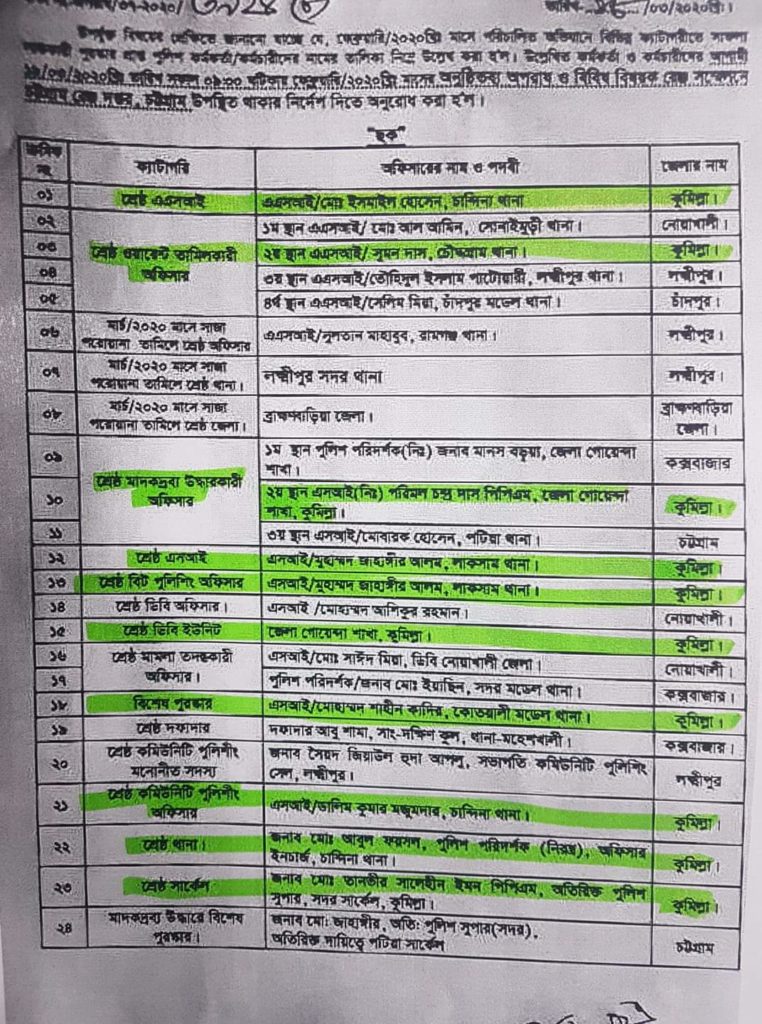 উপর্যুক্ত বিষয়ের প্রেক্ষিতে জানানো যাচ্ছে যে, ফেব্রুয়ারি/২০২০খ্রিঃ মাসে
"ছক"
ক্রমিক নং
ক্যাটাগরি
অফিসারের নাম ও পদবী
জেলার নাম
০১
শ্রেষ্ঠ এএসআই
এএসআই/মোঃ ইসমাইল হোসেন, চান্দিনা থানা
কুমিল্লা।
০২
শ্রেষ্ঠ ওয়ারেন্ট তামিলকারী
অফিসার
১ম স্থান এএসআই/ মোঃ আল আমিন, সোনাইমুড়ী থানা।
নোয়াখালী।
০৩
২য় স্থান এএসআই/ সুমন দাস, চৌদ্দগ্রাম থানা।
কুমিল্লা।
০৪
৩য় স্থান এএসআই/তৌহিদুল ইসলাম পাটোয়ারী, লক্ষীপুর থানা।
লক্ষীপুর।
০৫
৪র্থ স্থান এএসআই/সেলিম মিয়া, চাঁদপুর মডেল থানা।
চাঁদপুর।
০৬
মার্চ/২০২০ মাসে সাজা
পরোয়ানা তামিলে শ্রেষ্ঠ অফিসার
এএসআই/সুলতান মাহমুদ, রামগঞ্জ থানা।
লক্ষীপুর।
০৭
মার্চ/২০২০ মাসে সাজা
পরোয়ানা তামিলে শ্রেষ্ঠ থানা।
লক্ষীপুর সদর থানা
লক্ষীপুর।
০৮
মার্চ/২০২০ মাসে সাজা
পরোয়ানা তামিলে শ্রেষ্ঠ জেলা।
ব্রাহ্মণবাড়িয়া জেলা।
ব্রাহ্মণবাড়িয়া
জেলা।
০৯
শ্রেষ্ঠ মাদকদ্রব্য উদ্ধারকারী
অফিসার
১ম স্থান পুলিশ পরিদর্শক(নিঃ) জনাব মানস বড়ুয়া, জেলা গোয়েন্দা
শাখা।
কক্সবাজার
১০
২য় স্থান এসআই(নিঃ) পরিমল চন্দ্র দাস পিপিএম, জেলা গোয়েন্দা
শাখা, কুমিল্লা।
কুমিল্লা।
১১
৩য় স্থান এসআই/মোবারক হোসেন, পটিয়া থানা।
চট্টগ্রাম
১২
শ্রেষ্ঠ এসআই
এসআই/মুহাম্মদ জাহাঙ্গীর আলম, লাকসাম থানা।
কুমিল্লা।
১৩
শ্রেষ্ঠ বিট পুলিশিং অফিসার
এসআই/মুহাম্মদ জাহাঙ্গীর আলম, লাকসাম থানা।
কুমিল্লা।
১৪
শ্রেষ্ঠ ডিবি অফিসার।
এসআই /মোহাম্মদ আনিকুর রহমান।
নোয়াখালী।
১৫
শ্রেষ্ঠ ডিবি ইউনিট
জেলা গোয়েন্দা শাখা, কুমিল্লা।
কুমিল্লা।
১৬
শ্রেষ্ঠ মামলা তদন্তকারী
অফিসার।
এসআই/মোঃ সাঈদ মিয়া, ডিবি নোয়াখালী জেলা।
নোয়াখালী।
১৭
পুলিশ পরিদর্শক/জনাব মোঃ ইয়াছিন, সদর মডেল থানা।
কক্সবাজার।
১৮
বিশেষ পুরস্কার
এসআই/মোহাম্মদ শাহীন কাদির, কোতয়ালী মডেল থানা।
কুমিল্লা।
১৯
শ্রেষ্ঠ দফাদার
দফাদার আবু শামা, সাং-দক্ষিণ কুল, থানা-মহেশখালী।
কক্সবাজার।
২০
শ্রেষ্ঠ কমিউনিটি পুলিশিং
মনোনীত সদস্য
জনাব সৈয়দ জিয়াউল হুদা আপলু, সভাপতি কমিউনিটি পুলিশিং
সেল, লক্ষীপুর।
লক্ষীপুর
২১
শ্রেষ্ঠ কমিউনিটি পুলিশিং
অফিসার
এসআই/ডালিম কুমার মজুমদার, চান্দিনা থানা।
কুমিল্লা।
২২
শ্রেষ্ঠ থানা।
জনাব মোঃ আবুল ফয়সল, পুলিশ পরিদর্শক (নিরস্ত্র), অফিসার
ইনচার্জ, চান্দিনা থানা।
কুমিল্লা।
২৩
শ্রেষ্ঠ সার্কেল
জনাব মোঃ তানভীর সালেহীন ইমন পিপিএম, অতিরিক্ত পুলিশ
সুপার, সদর সার্কেল, কুমিল্লা।
কুমিল্লা।
২৪
মাদকদ্রব্য উদ্ধারে বিশেষ
পুরস্কার।
জনাব মোঃ জাহাঙ্গীর, অতিঃ পুলিশ সুপার(সদর),
অতিরিক্ত দায়িত্বে পটিয়া সার্কেল
চট্টগ্রাম